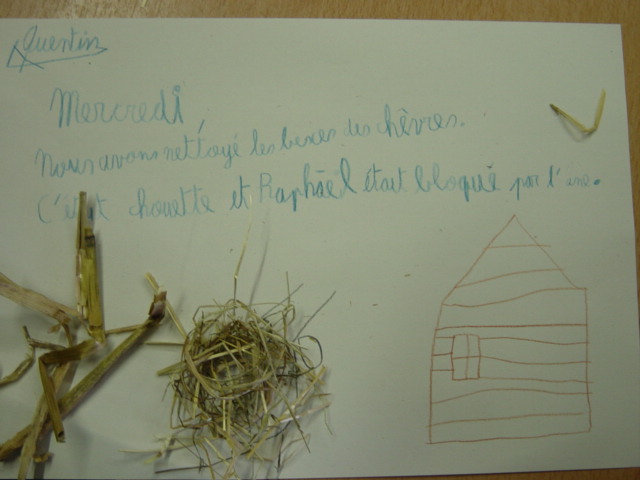 Quentin
Mercredi
Nous avons nettoyé les boxes des chèvres.
C'était chouette et Raphaël était bloqué par l'une.